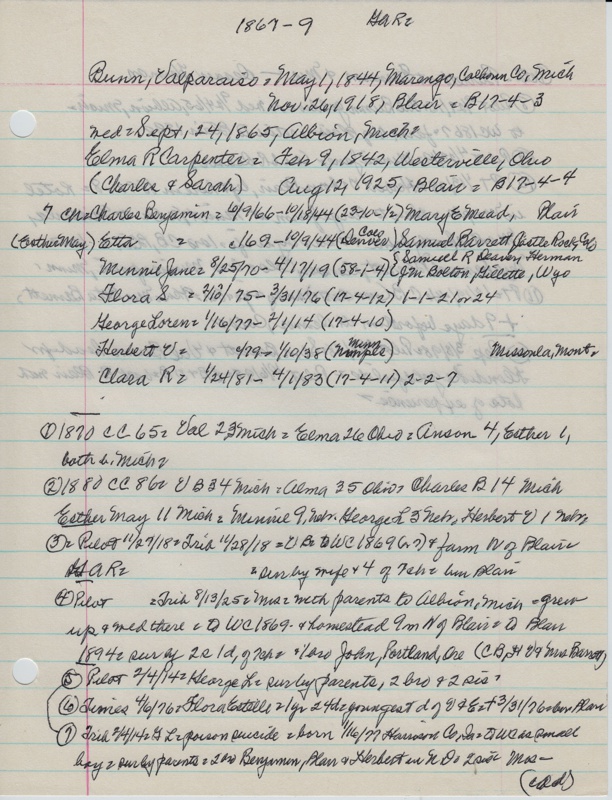 1867-9 GAR=
Bunn, Valparaiso = May 1, 1844, Marengo, Calhoun Co, Mich
Nov. 26, 1918, Blair = B17-4-3
med = Sept, 24, 1865, Albion, Mich=
Elma R Carpenter = Feb 9, 1842, Westerville, Ohio
(Charles & Sarah) Aug 12, 1925, Blair = B17-4-4
7 cn = Charles Benjamin = 6/9/66 - 10/18/44 (23-10-1/2) Mary E Mead, Blair
(Esther May) Etta = c169 - 10/9/44 (Denver Colo) Samuel Barrett Castle Rock, Co
Minnie Jane = 8/25/70 - 4/17/19 (58-1-4) { Samuel R Deaver, Herman
J.M. Bolton, Gillette, Wyo
Flora S = 2/10/75 - 3/31/76 (17-4-12) 1-1-21 or 24
George Loren = 1/16/77 - 2/1/14 (17-4-10)
Herbert V = 4/79 - 1/10/38 (Minn) Missoula, Mont=
Clara R = 1/24/81 - 4/1/83 (17-4-11) 2-2-7
① 1870 CC 65 = Val 25 Mich = Elma 26 Ohio = Anson 4, Esther 1,
both b. Mich=
② 1880 CC 86 = V B 34 Mich = Alma 35 Ohio = Charles B 14 Mich
Esther May 11 Mich = Minnie 9, Nebr. George L 3 Nebr, Herbert V 1 Nebr,
③ = Pilot 11/27/18 = Trib 11/28/18 = V B = to WC 1869 (67) & farm N of Blair =
GAR= = sur by wife & 4 of 7 ch = bur Blair
④ Pilot = Trib 8/13/25 = Mrs = with parents to Albion, Mich = grew
up & med there = to WC 1869 & homestead 9m N of Blair = to Blair
1894 = sur by 2s 1d, of 7 ch = & bro John, Portland, Ore (CB, H V & Mrs Barrett)
⑤ Pilot 2/4/14 = George L = sur by parents, 2 bro & 2 sis =
⑥ Times 4/6/76 = Flora Estelle = 1yr 24d = youngest d of V & E = 3/31/76 = bur Blair
⑦ Trib 2/4/14 = G L = poison suicide = born 1/16/77 Harrison Co, Ia = to WC as small
boy = sur by parents = 2 bro Benjamin, Blair & Herbert in N D = 2 sis = Mrs =